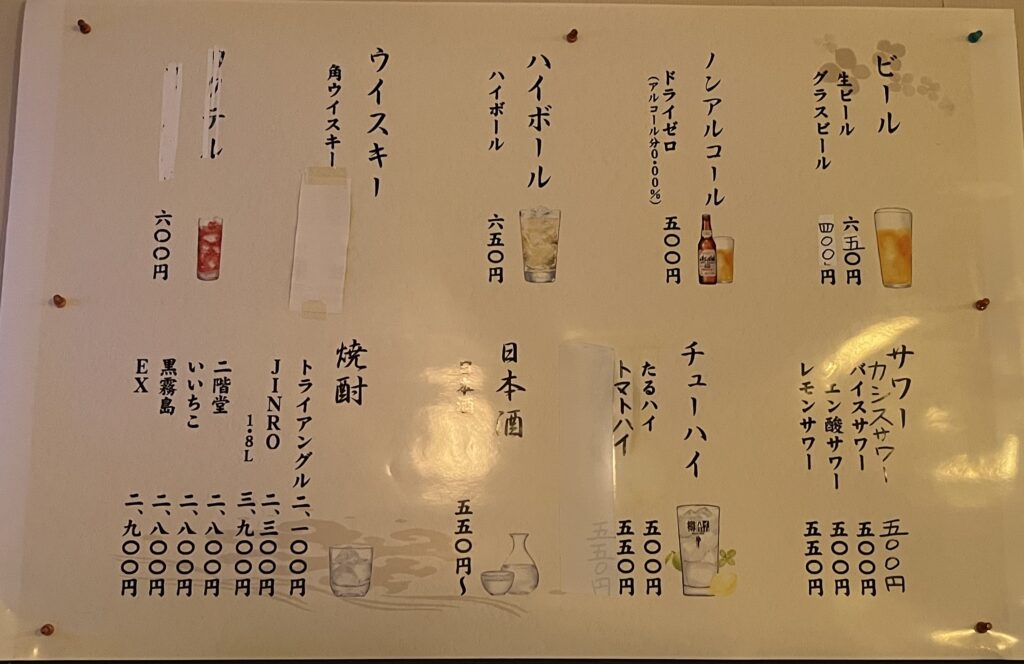 ビール
生ビール 六五〇円
グラスビール 四〇〇円
ノンアルコール
ドライゼロ 五〇〇円
(アルコール分0.00%)
ハイボール
ハイボール 六五〇円
ウイスキー
角ウイスキー
六〇〇円
サワー
カシスサワー 五〇〇円
バイスサワー 五〇〇円
クエン酸サワー 五〇〇円
レモンサワー 五五〇円
チューハイ
たるハイ 五〇〇円
トマトハイ 五五〇円
五五〇円
日本酒
日本酒 五五〇円〜
焼酎
トライアングル 二、一〇〇円
JINRO 二、三〇〇円
1.8L 三、九〇〇円
二階堂 二、八〇〇円
いいちこ 二、八〇〇円
黒霧島 二、八〇〇円
EX 二、九〇〇円